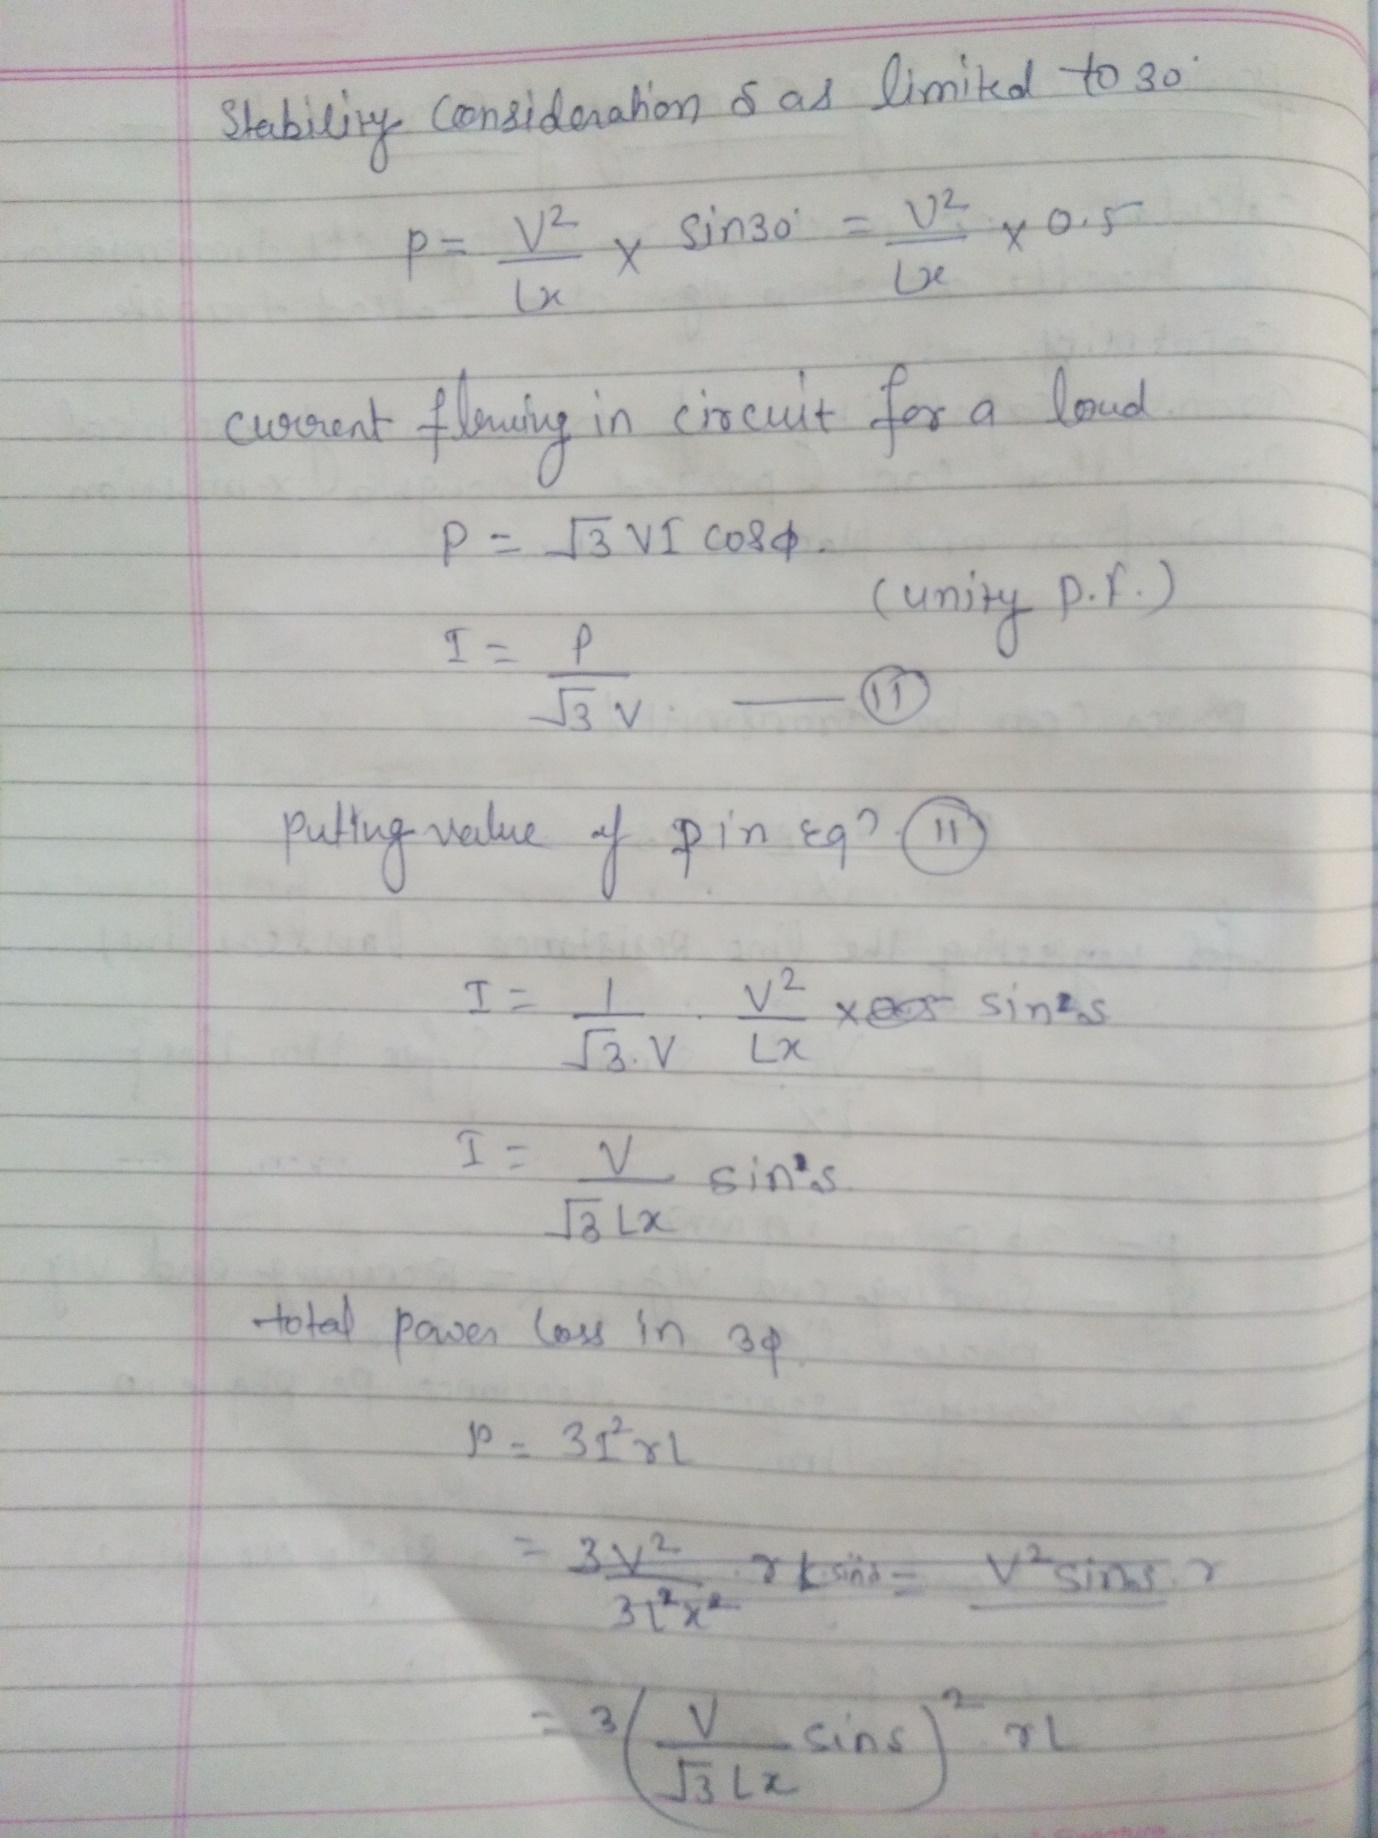 Stability Consideration δ as limited to 30°
P = V²/Lx × sin30° = V²/Lx × 0.5
current flowing in circuit for a load
P = √3 VI cosφ.
(unity p.f.)
I = P/√3 V. — (11)
Putting value of P in Eqⁿ. (11)
I = 1/√3.V . V²/Lx × sin δ
I = V/√3 Lx sin δ
total power loss in 3φ
P = 3I²rL
= 3V²/3L²x² rL sinδ = V² sinδ r
= 3(V/√3 Lx sin δ)² rL